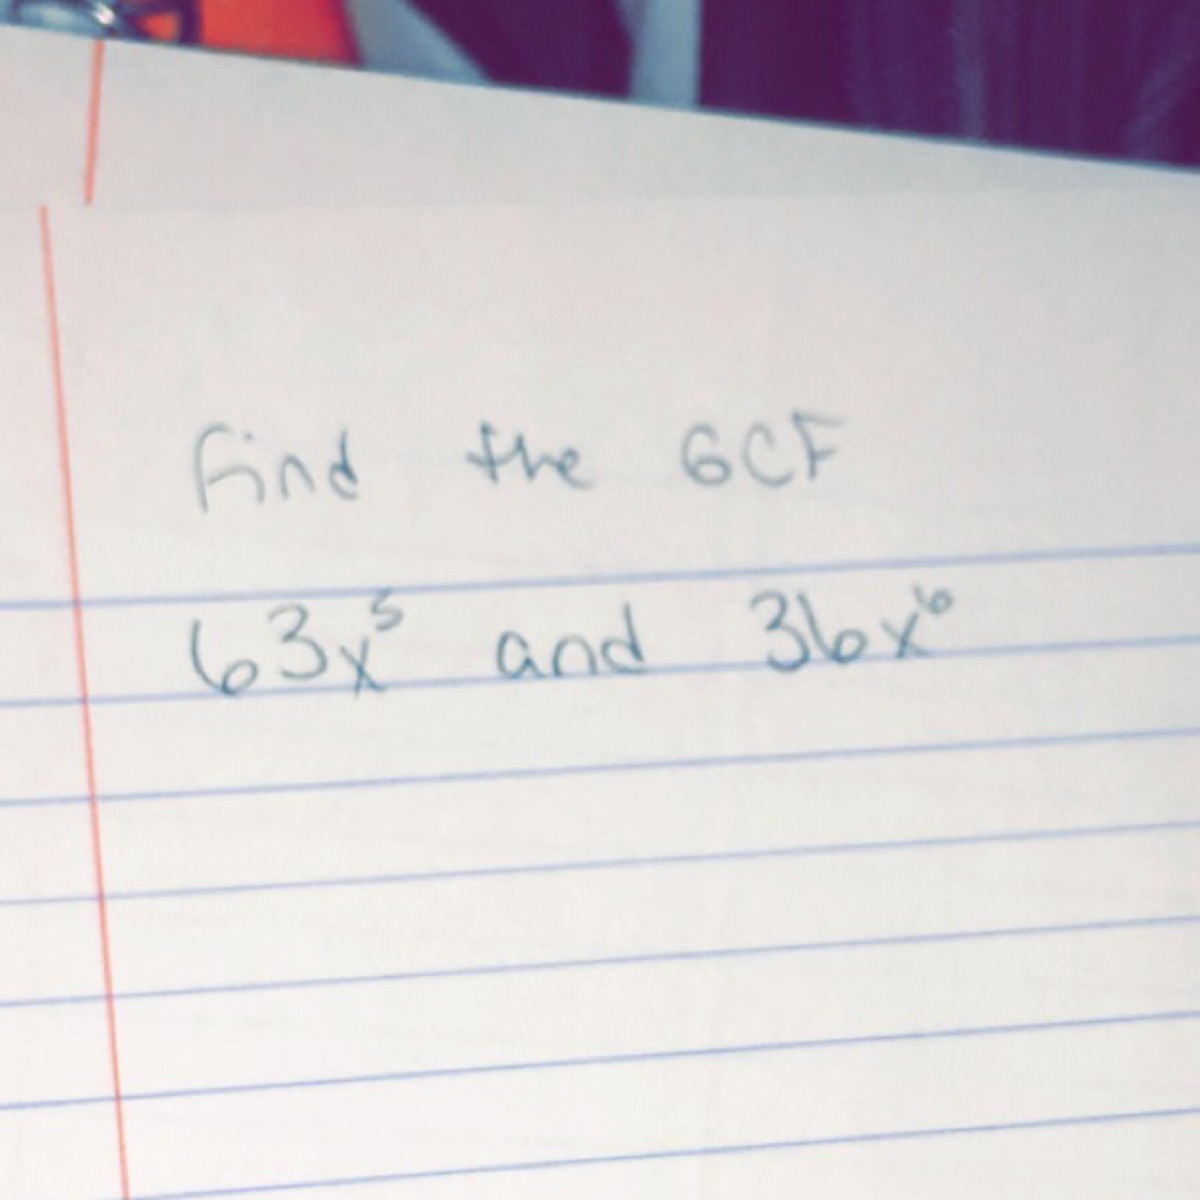 find the GCF
63x⁵ and 36x⁶